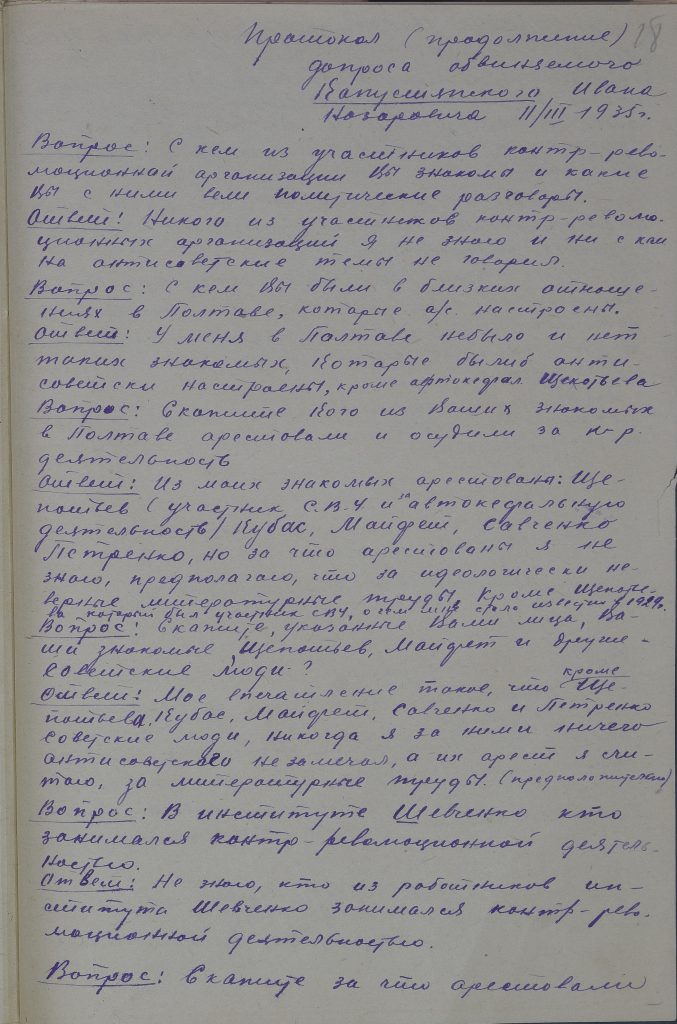 Протокол (продолжение) 18
допроса обвиняемого
Капустянского Ивана
Назаровича 11/III 1935г.
Вопрос: С кем из участников контр-рево-
люционной организации Вы знакомы и какие
Вы с ними вели политические разговоры.
Ответ: Никого из участников контр-револю-
ционных организаций я не знаю и ни с кем
на антисоветские темы не говорил.
Вопрос: С кем Вы были в близких отноше-
ниях в Полтаве, которые а/с. настроены.
Ответ: У меня в Полтаве небыло и нет
таких знакомых, которые былиб анти-
советски настроены, кроме автокефал. Щепотьева
Вопрос: Скажите кого из Ваших знакомых
в Полтаве арестовали и осудили за к-р.
деятельность
Ответ: Из моих знакомых арестованы: Ще-
потьев (участник С.В.У и за автокефальную
деятельность) Кубас, Майфет, Савченко
Петренко, но за что арестованы я не
знаю, предполагаю, что за идеологически не-
верные литературные труды, кроме Щепотье-
ва который был участник СВУ, о чем мне стало известно у 1929г.
Вопрос: Скажите, указанные Вами лица, Ва-
ши знакомые Щепотьев, Майфет и другие -
советские люди?
Ответ: Мое впечатление такое, что кроме Ще-
потьева, Кубас, Майфет, Савченко и Петренко
советские люди, никогда я за ними ничего
антисоветского незамечал, а их арест я счи-
таю, за литературные труды. (предположительно)
Вопрос: В институте Шевченко кто
занимался контр-революционной деятель-
ностью.
Ответ: Не знаю, кто из работников ин-
ститута Шевченко занимался контр-рево-
люционной деятельностью.
Вопрос: Скажите за что арестовали